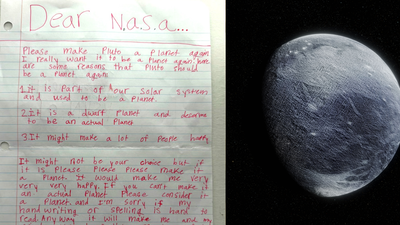 Dear N.a.s.a...
Please make Pluto a Planet again
I really want it to be a Planet again. here
are some reasons that Pluto should
be a Planet again
1.it is part of our Solar System
and used to be a Planet.
2.It is a dwarf Planet and deserve
to be an actual Planet
3.It might make a lot of People happy
It might not be your choice but if
it is Please Please Please make it
a Planet. It would make me very
very very happy. If you can't make it
an actual Planet Please consider it
a Planet. and I'm sorry if my
hand writing or spelling is hard to
read Any way it will make me and my